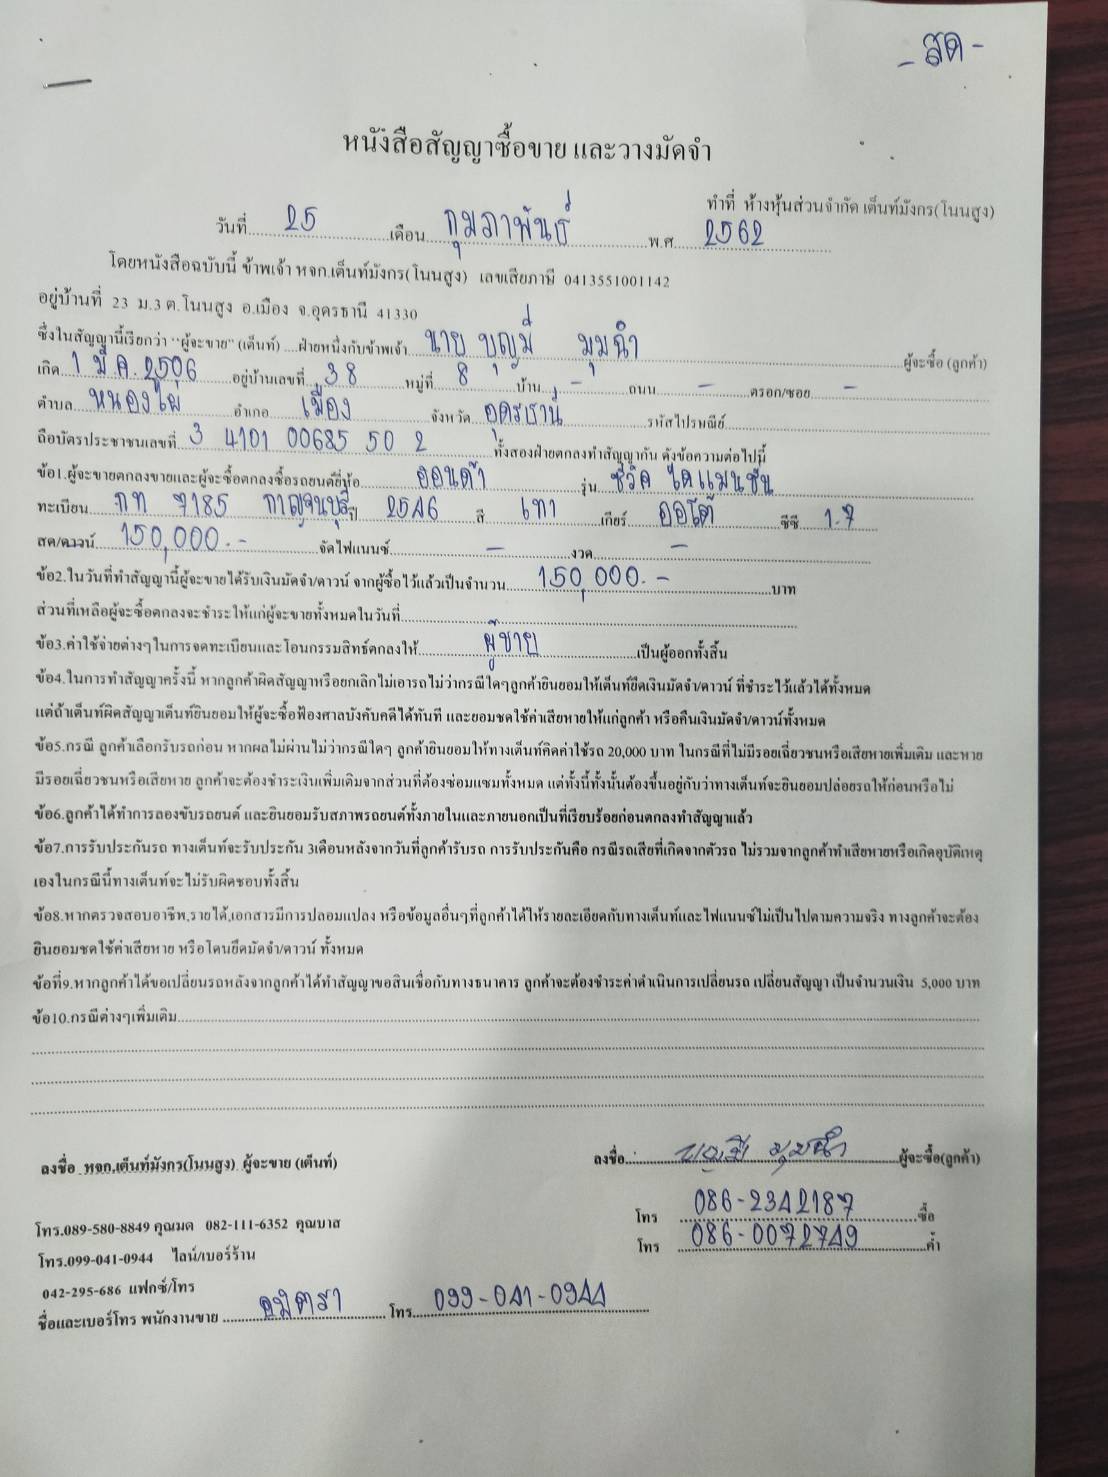 - สด -
หนังสือสัญญาซื้อขาย และวางมัดจำ
ทำที่ ห้างหุ้นส่วนจำกัด เต็นท์มังกร(โนนสูง)
วันที่ 25 เดือน กุมภาพันธ์ พ.ศ. 2562
โดยหนังสือฉบับนี้ ข้าพเจ้า หจก.เต็นท์มังกร(โนนสูง) เลขเสียภาษี 0413551001142
อยู่บ้านที่ 23 ม.3 ต.โนนสูง อ.เมือง จ.อุดรธานี 41330
ซึ่งในสัญญานี้เรียกว่า "ผู้จะขาย" (เต็นท์) ....ฝ่ายหนึ่งกับข้าพเจ้า นาย บุญมี มุมฉำ ผู้จะซื้อ (ลูกค้า)
เกิด 1 มี.ค. 2506 อยู่บ้านเลขที่ 38 หมู่ที่ 8 บ้าน - ถนน - ตรอก/ซอย -
ตำบล หนองไผ่ อำเภอ เมือง จังหวัด อุดรธานี รหัสไปรษณีย์
ถือบัตรประชาชนเลขที่ 3 4101 00685 50 2 ทั้งสองฝ่ายตกลงทำสัญญากัน ดังข้อความต่อไปนี้
ข้อ1.ผู้จะขายตกลงขายและผู้จะซื้อตกลงซื้อรถยนต์ยี่ห้อ ฮอนด้า รุ่น ซีวิค ไดแมนชั่น
ทะเบียน กท 7185 กาญจนบุรี ปี 2546 สี เทา เกียร์ ออโต้ ซีซี 1.7
สด/ดาวน์ 150,000.- จัดไฟแนนซ์ - งวด -
ข้อ2.ในวันที่ทำสัญญานี้ผู้จะขายได้รับเงินมัดจำ/ดาวน์ จากผู้ซื้อไว้แล้วเป็นจำนวน 150,000.- บาท
ส่วนที่เหลือผู้จะซื้อตกลงจะชำระให้แก่ผู้จะขายทั้งหมดในวันที่
ข้อ3.ค่าใช้จ่ายต่างๆในการจดทะเบียนและโอนกรรมสิทธ์ตกลงให้ ผู้ขาย เป็นผู้ออกทั้งสิ้น
ข้อ4.ในการทำสัญญาครั้งนี้ หากลูกค้าผิดสัญญาหรือยกเลิกไม่เอารถไม่ว่ากรณีใดๆลูกค้ายินยอมให้เต็นท์ยึดเงินมัดจำ/ดาวน์ ที่ชำระไว้แล้วได้ทั้งหมด
แต่ถ้าเต็นท์ผิดสัญญาเต็นท์ยินยอมให้ผู้จะซื้อฟ้องศาลบังคับคดีได้ทันที และยอมชดใช้ค่าเสียหายให้แก่ลูกค้า หรือคืนเงินมัดจำ/ดาวน์ทั้งหมด
ข้อ5.กรณี ลูกค้าเลือกรับรถก่อน หากผลไม่ผ่านไม่ว่ากรณีใดๆ ลูกค้ายินยอมให้ทางเต็นท์คิดค่าใช้รถ 20,000 บาท ในกรณีที่ไม่มีรอยเฉี่ยวชนหรือเสียหายเพิ่มเติม และหาย
มีรอยเฉี่ยวชนหรือเสียหาย ลูกค้าจะต้องชำระเงินเพิ่มเติมจากส่วนที่ต้องซ่อมแซมทั้งหมด แต่ทั้งนี้ทั้งนั้นต้องขึ้นอยู่กับว่าทางเต็นท์จะยินยอมปล่อยรถให้ก่อนหรือไม่
ข้อ6.ลูกค้าได้ทำการลองขับรถยนต์ และยินยอมรับสภาพรถยนต์ทั้งภายในและภายนอกเป็นที่เรียบร้อยก่อนตกลงทำสัญญาแล้ว
ข้อ7.การรับประกันรถ ทางเต็นท์จะรับประกัน 3เดือนหลังจากวันที่ลูกค้ารับรถ การรับประกันคือ กรณีรถเสียที่เกิดจากตัวรถ ไม่รวมจากลูกค้าทำเสียหายหรือเกิดอุบัติเหตุ
เองในกรณีนี้ทางเต็นท์จะไม่รับผิดชอบทั้งสิ้น
ข้อ8.หากตรวจสอบอาชีพ,รายได้,เอกสารมีการปลอมแปลง หรือข้อมูลอื่นๆที่ลูกค้าได้ให้รายละเอียดกับทางเต็นท์และไฟแนนซ์ไม่เป็นไปตามความจริง ทางลูกค้าจะต้อง
ยินยอมชดใช้ค่าเสียหาย หรือโดนยึดมัดจำ/ดาวน์ ทั้งหมด
ข้อที่9.หากลูกค้าได้ขอเปลี่ยนรถหลังจากลูกค้าได้ทำสัญญาขอสินเชื่อกับทางธนาคาร ลูกค้าจะต้องชำระค่าดำเนินการเปลี่ยนรถ เปลี่ยนสัญญา เป็นจำนวนเงิน 5,000 บาท
ข้อ10.กรณีต่างๆเพิ่มเติม
ลงชื่อ หจก.เต็นท์มังกร(โนนสูง) ผู้จะขาย (เต็นท์) ลงชื่อ บุญมี มุมฉำ ผู้จะซื้อ(ลูกค้า)
โทร 086-2342187 ซื้อ
โทร.089-580-8849 คุณมด 082-111-6352 คุณบาส
โทร 086-0072749 ค้ำ
โทร.099-041-0944 ไลน์/เบอร์ร้าน
042-295-686 แฟกซ์/โทร
ชื่อและเบอร์โทร พนักงานขาย โทร. 099-041-0944